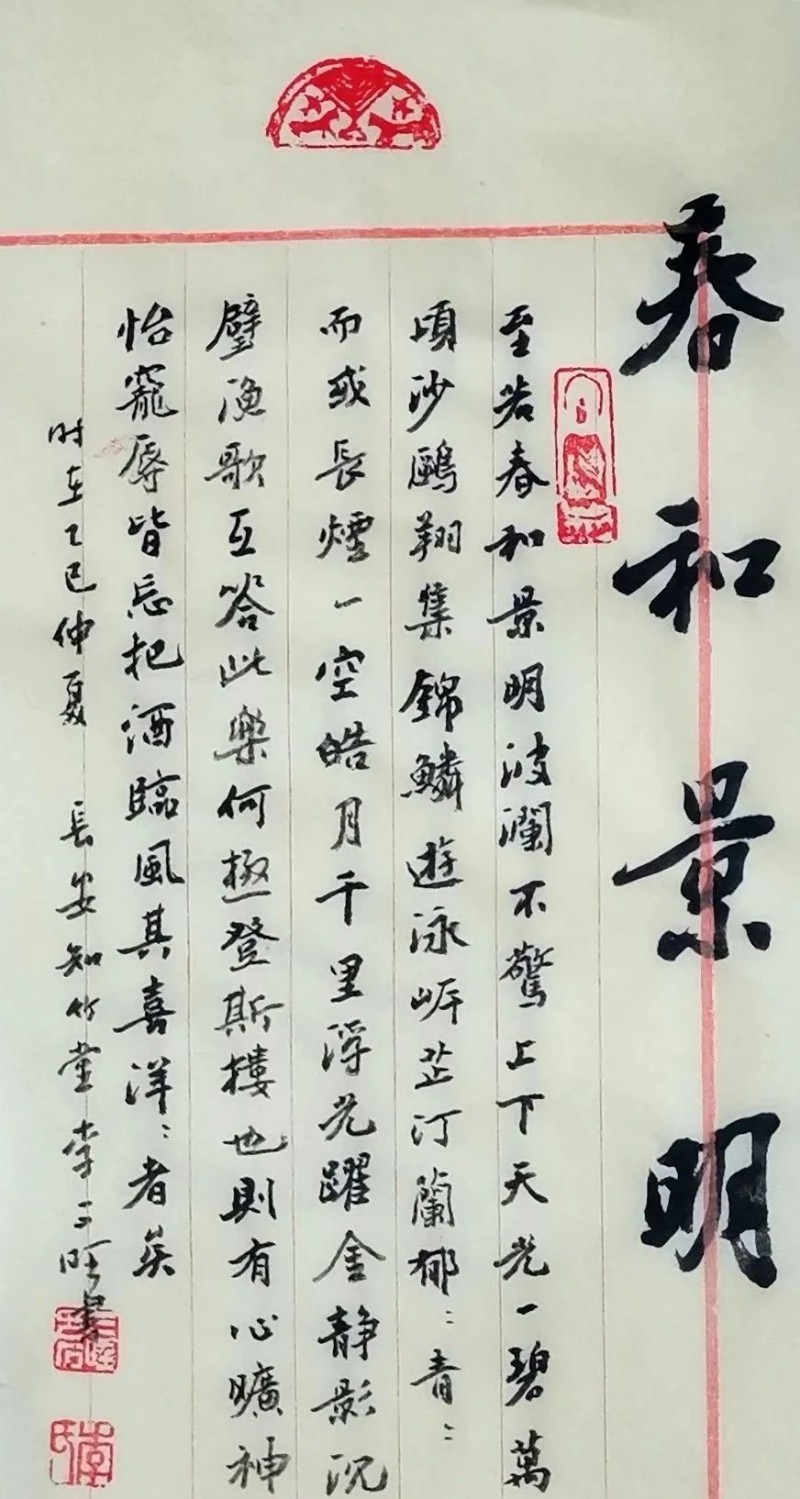 春和景明
至若春和景明波瀾不驚上下天光一碧萬
頃沙鷗翔集錦鱗遊泳岸芷汀蘭郁〻青〻
而或長煙一空皓月千里浮光躍金静影沉
璧漁歌互答此樂何極登斯樓也則有心曠神
怡寵辱皆忘把酒臨風其喜洋〻者矣
时在乙巳仲夏 長安知竹堂李三旺書